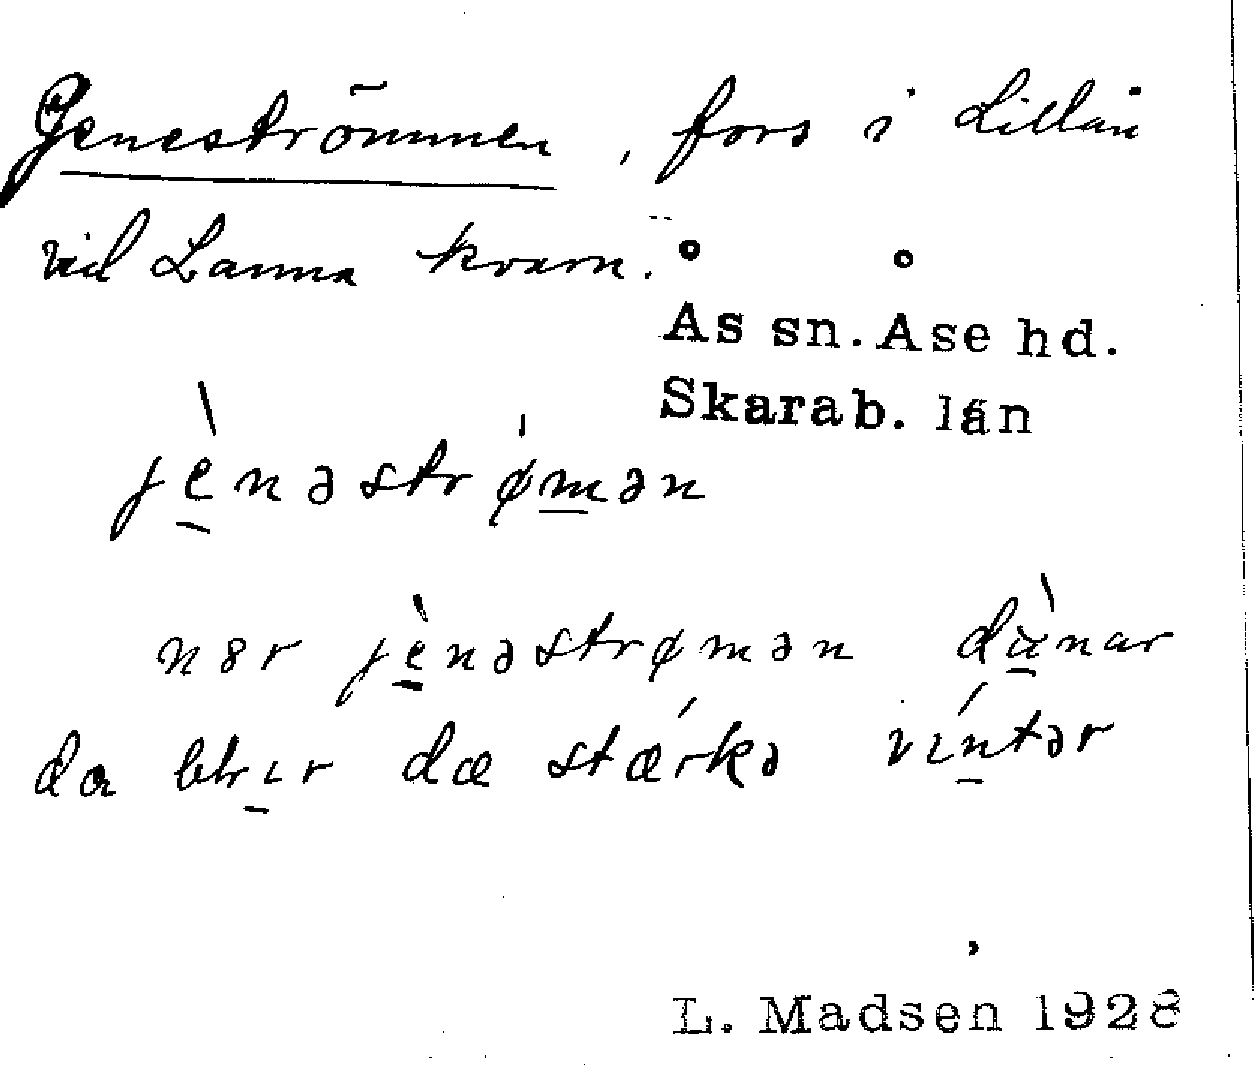 Geneströmmen, fors i Lillån
vid Lanna kvarn.
Ås sn. Åse hd.
Skarab. län
jènəstrømən
nər jènəstrømən dànar
da blır dæ stærkə vıntər
L. Madsen 1928